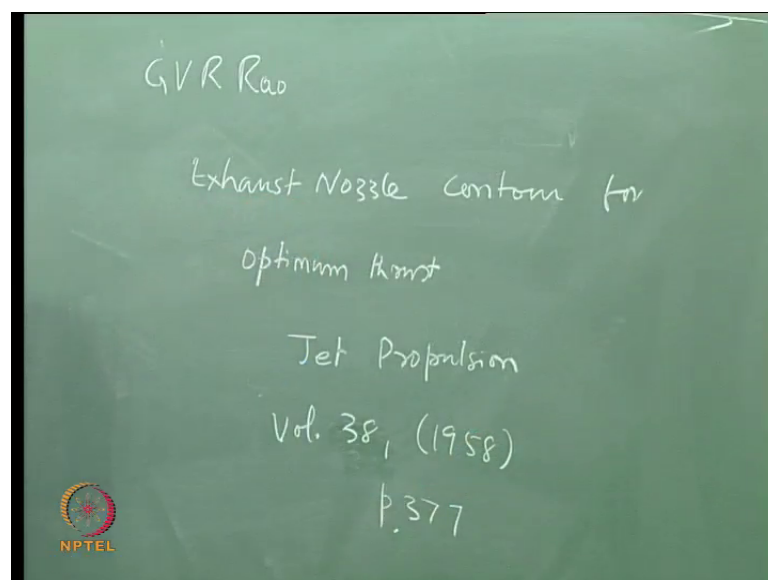 GVR Rao
Exhaust Nozzle Contour for
Optimum thrust
Jet Propulsion
Vol. 38, (1958)
p.377
NPTEL